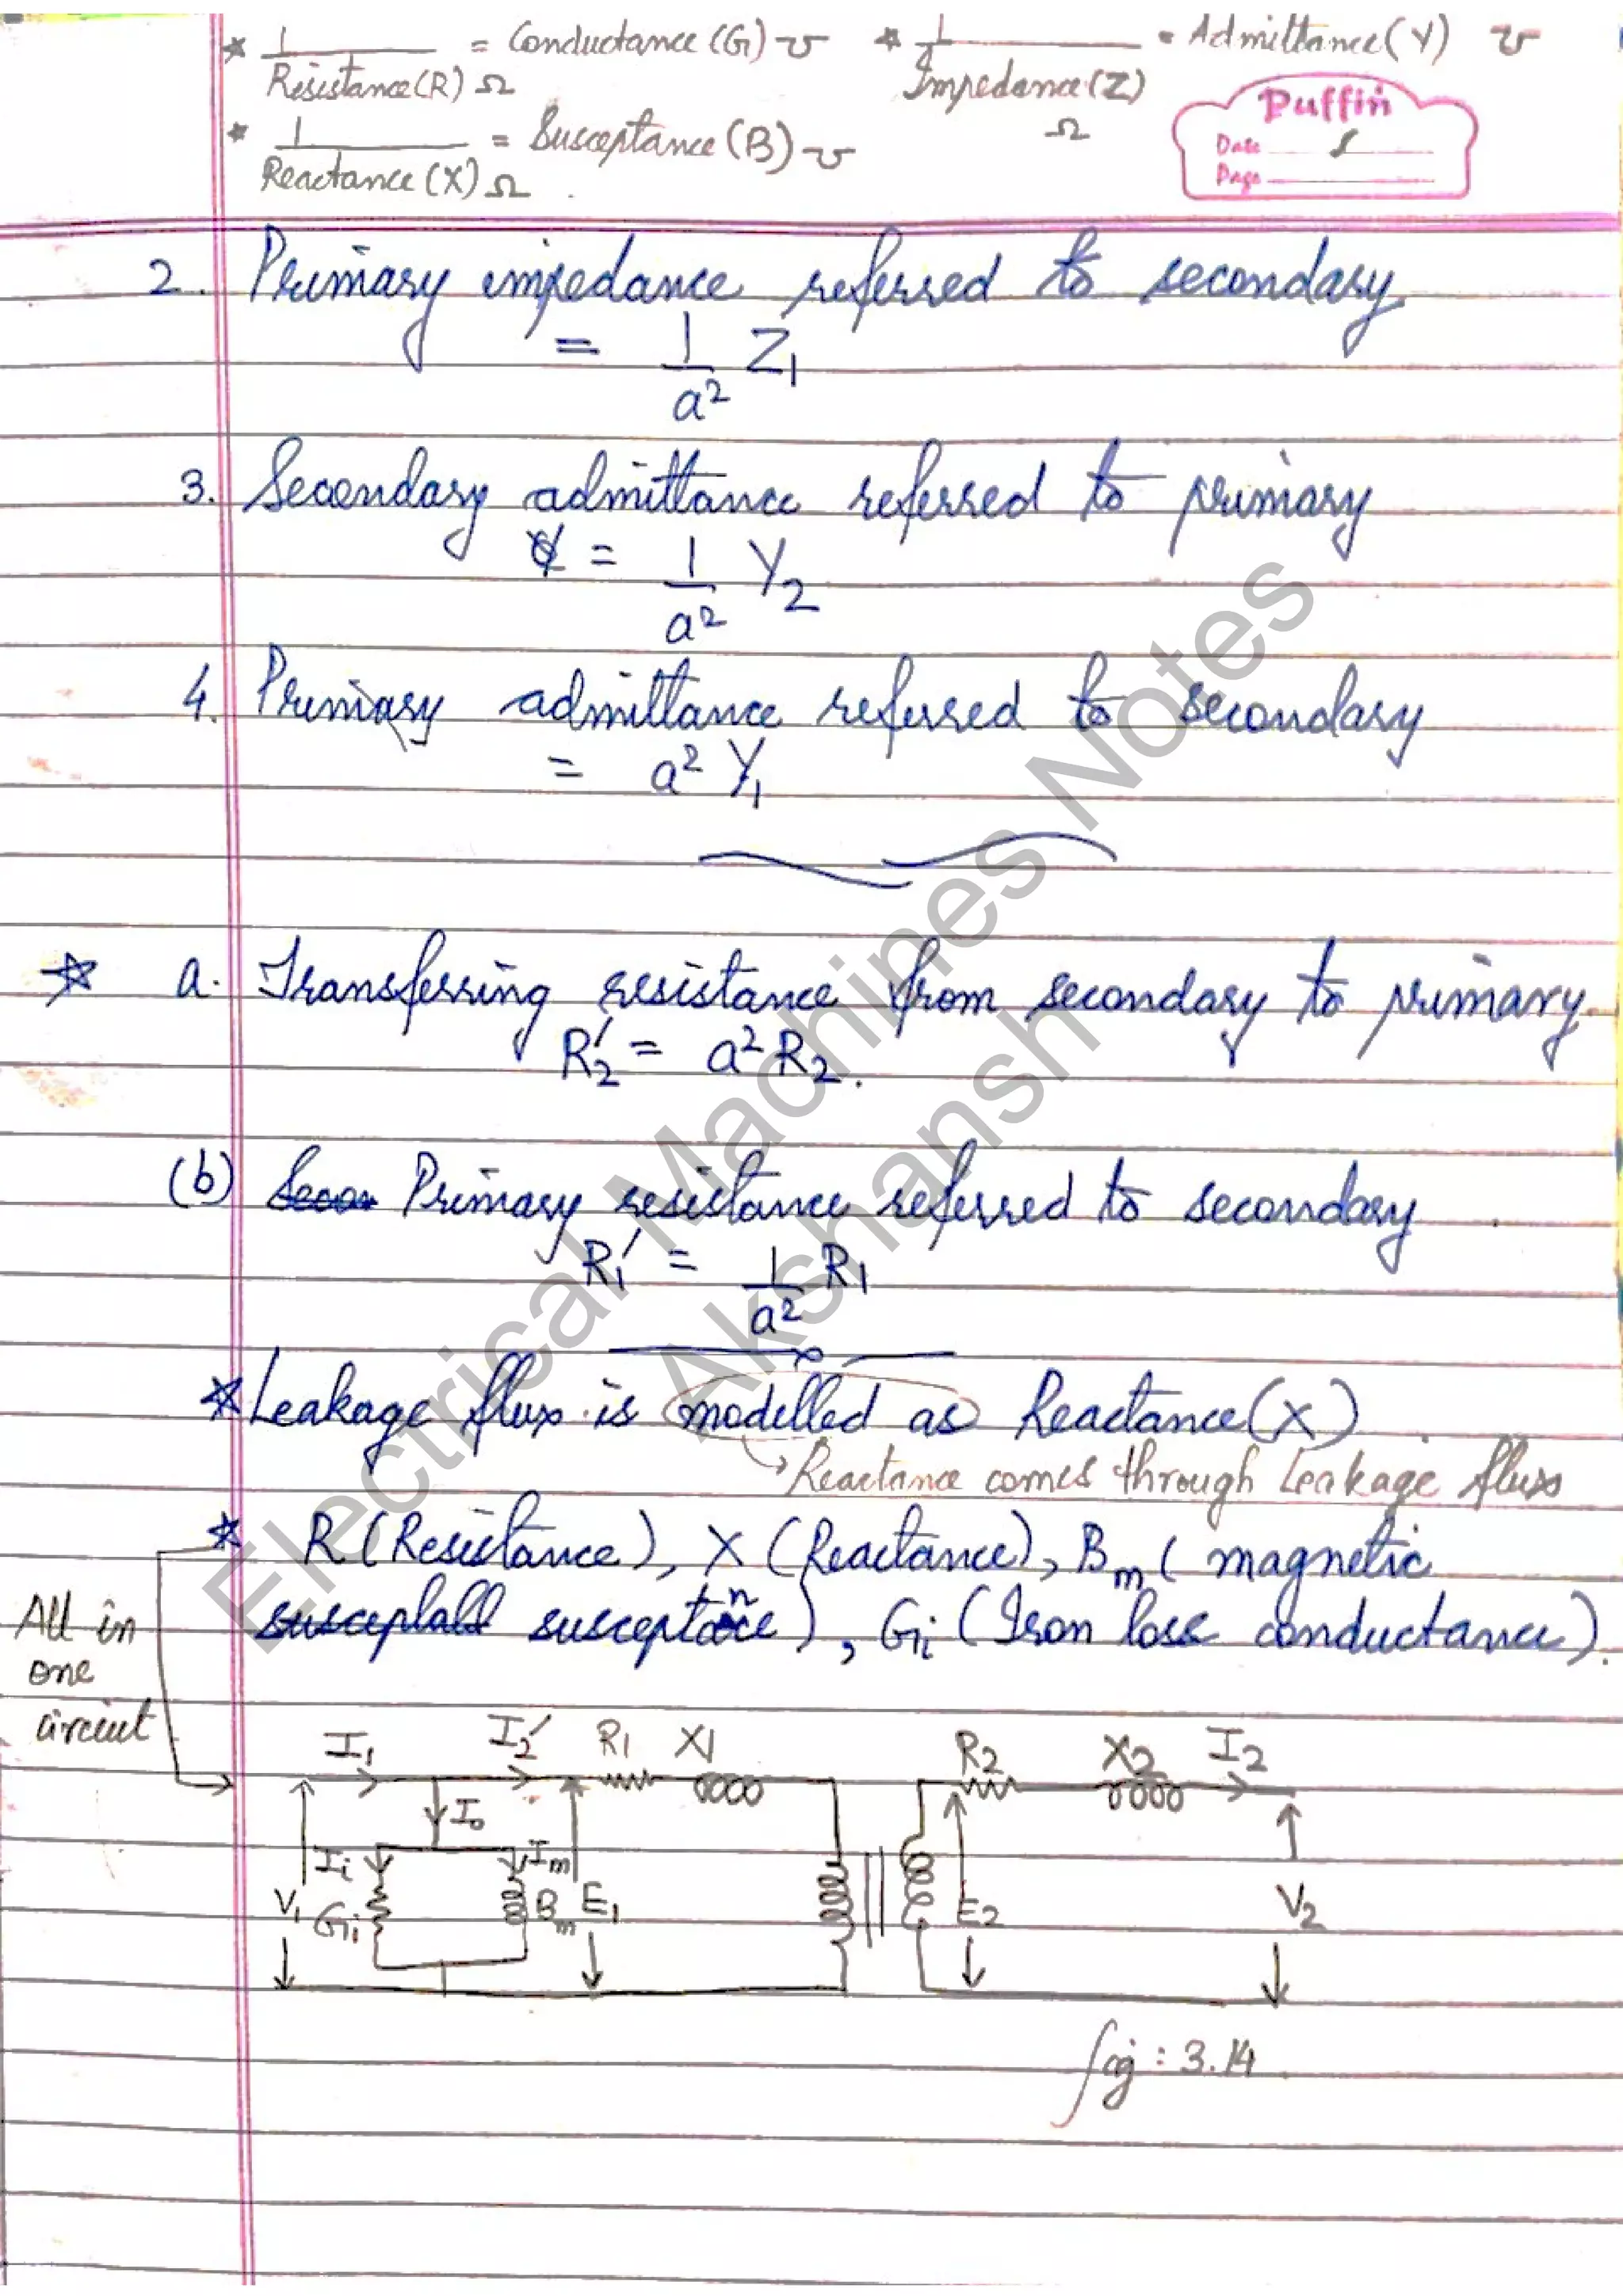 * 1/Resistance(R) Ω = Conductance (G) ℧ * 1/Impedance(Z) Ω = Admittance(Y) ℧
* 1/Reactance(X) Ω = Susceptance (B) ℧
Puffin
Date
Page
2. Primary impedance referred to secondary
= 1/a² Z₁
3. Secondary admittance referred to primary
= 1/a² Y₂
4. Primary admittance referred to secondary
= a² Y₁
* a. Transferring resistance from secondary to primary.
R₂' = a² R₂.
(b) Primary resistance referred to secondary
R₁' = 1/a² R₁
* Leakage flux is modelled as Reactance(X)
→ Reactance comes through Leakage flux
* R (Resistance), X (Reactance), Bm ( magnetic
susceptance), Gi (Iron loss conductance).
All in
one
circuit
I₁ I₂' R₁ X₁ R₂ X₂ I₂
I₀
Ii Im
V₁ Gi Bm E₁ E₂ V₂
fig: 3.14
Electrical Machines Notes
Akshansh